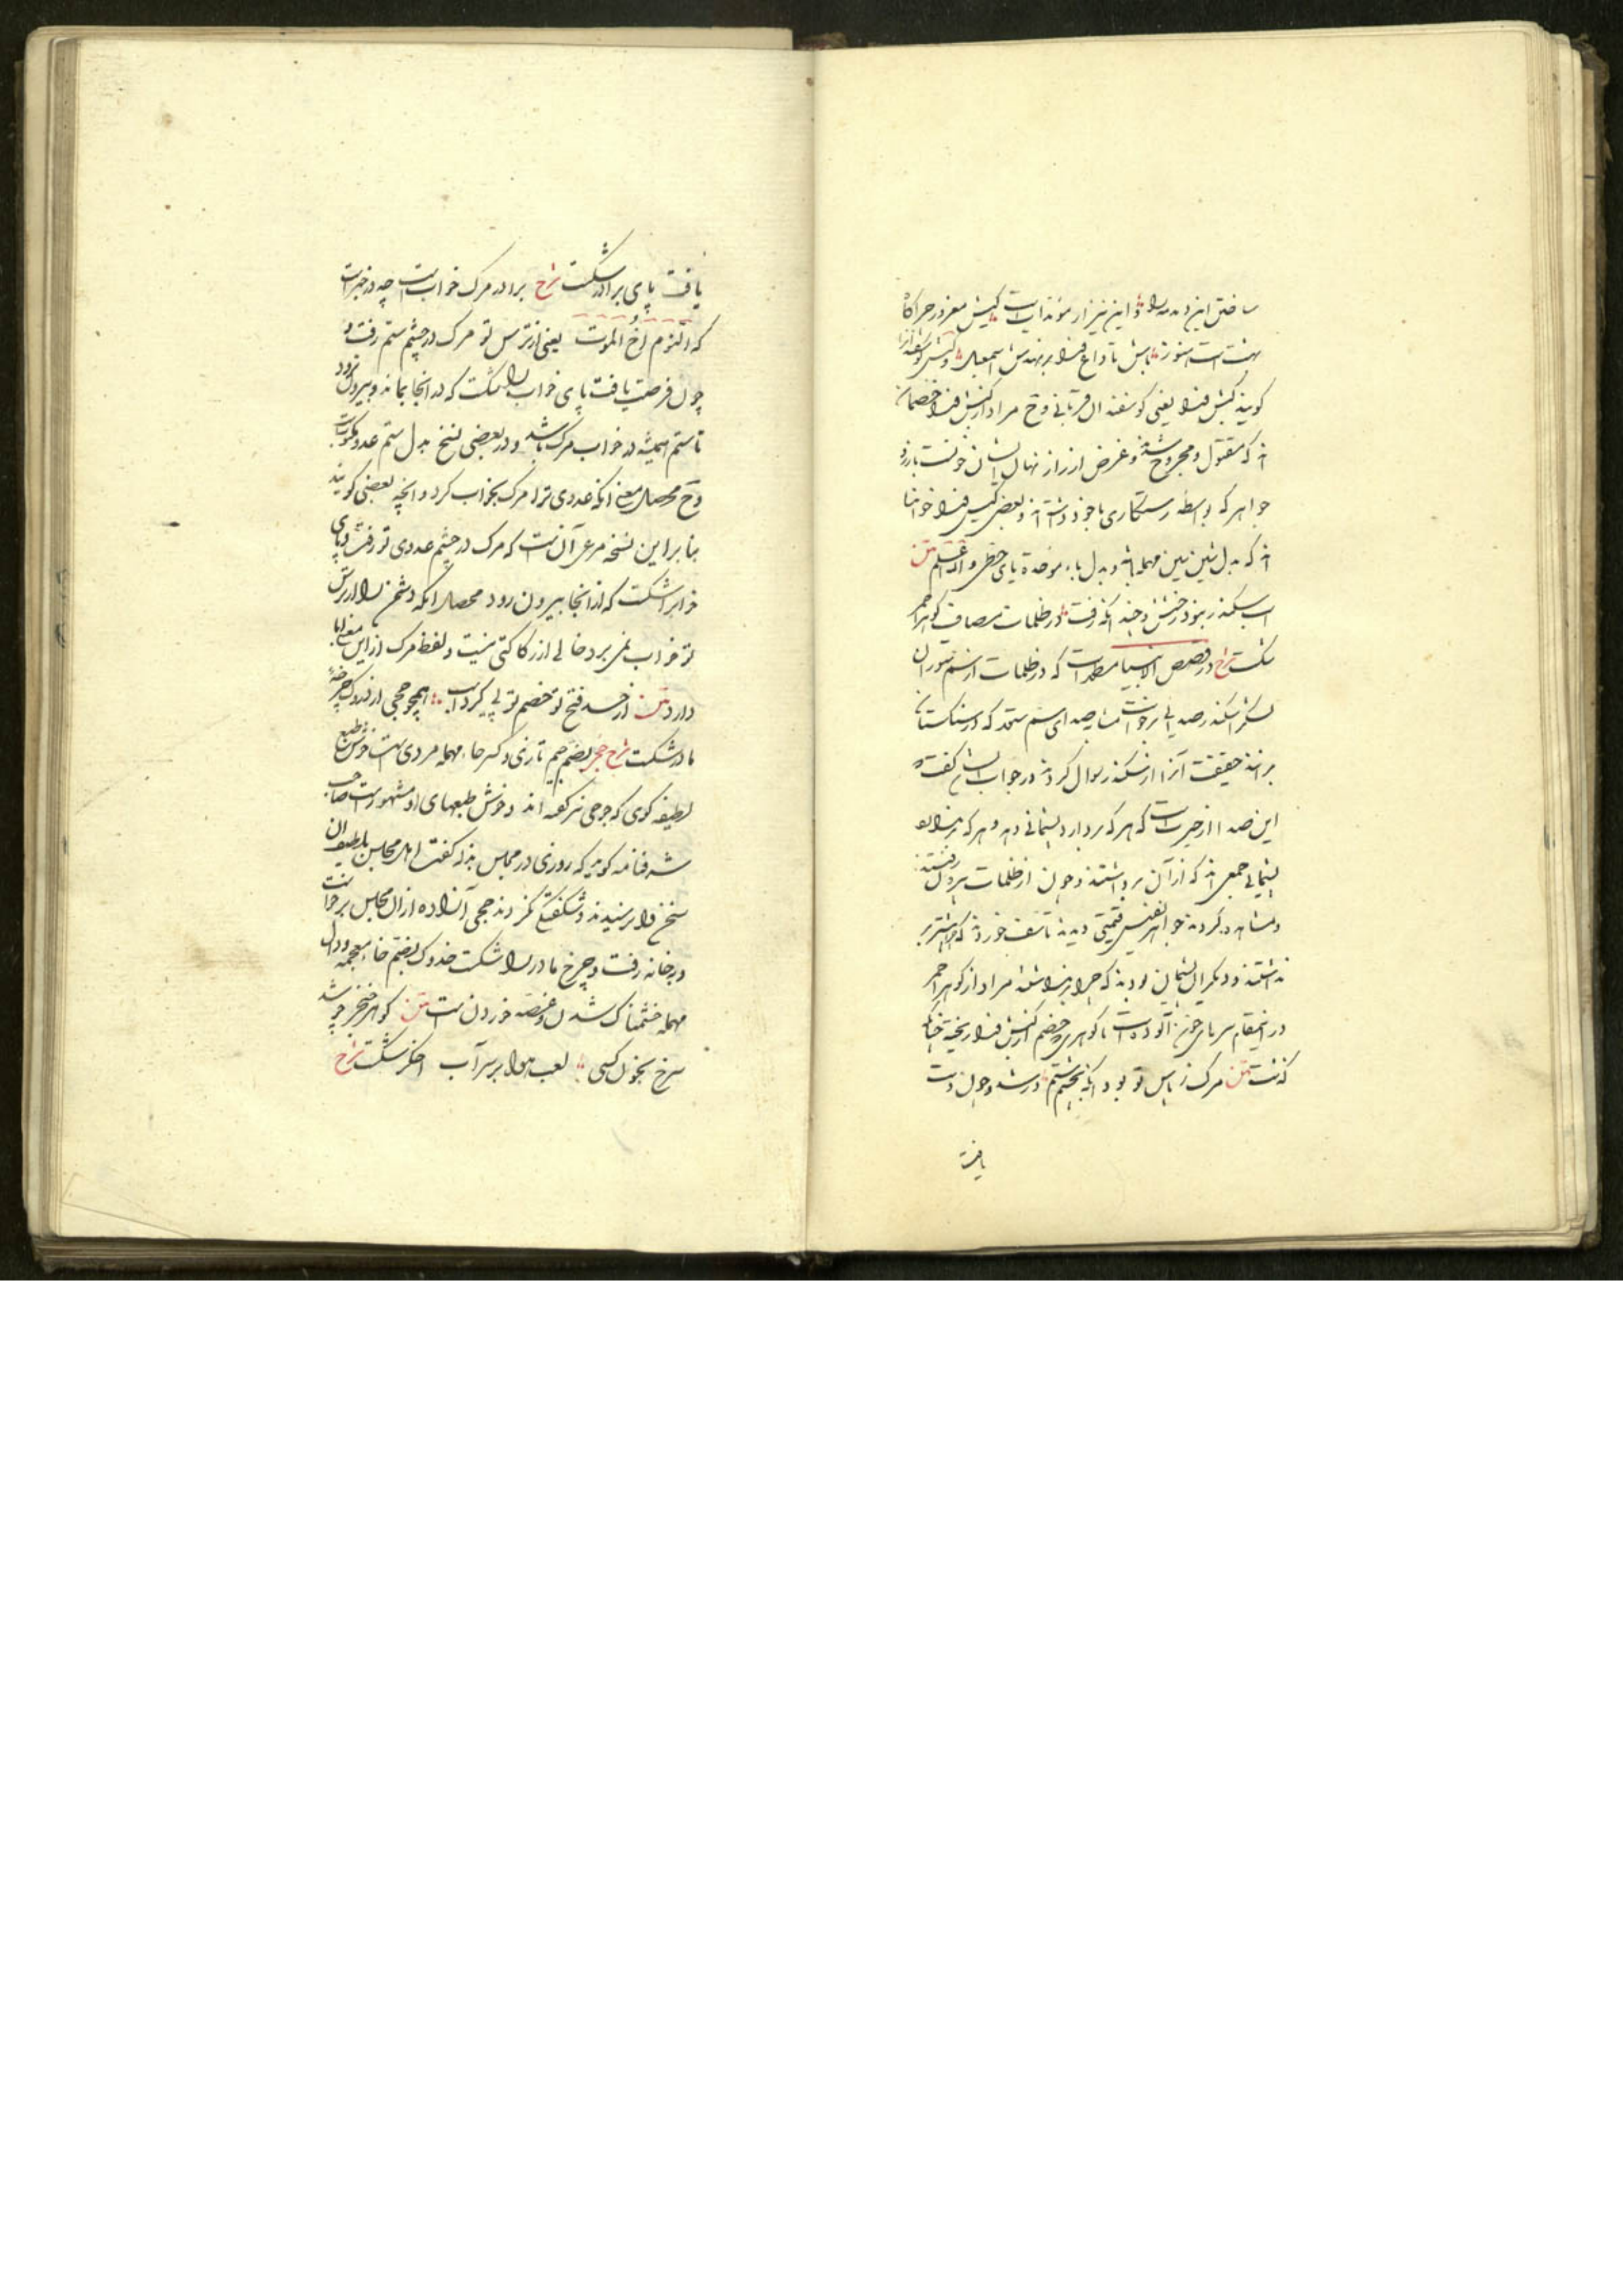 ساختن این دمدمه را و این نیز از مؤیدات است کیش مغرور چراگاه
بهشت است هنوز باش تا داغ فنا بر نهدش اسمعیل و کبش گوسفند را
گویند کبش فنا یعنی گوسفند آن قربانی و ح مراد از کبش فنا خصمان
اند که مقتول و مجروح شدند و غرض از راز نهان ایشان خونست بارز
جواهر که بواسطه رستگاری با خود داشته اند و بعضی کیس فنا خوانده
اند که بدل شین سین مهمله باشد و بدل باء موحده یای حطی والله اعلم متن
اسب سکندر نبود رخش و چند آنکه رفت در ظلمات مصاف گوهر احمر
شکست شرح در قصص الانبیا مسطور است که در ظلمات از سم ستوران
لشکر اسکندر صدایی برخواست مشابه صدای سم ستور که در سنگستان
برانند حقیقت آنرا از سکندر سوال کردند در جواب ایشان گفت
این صدا از چیزیست که هر که بردارد پشیمانی دهد و هر که نبردارد
پشیمانی جمعی اند که از آن برداشتند و چون از ظلمات بیرون رفتند
و مشاهده کردند جواهر نفیس قیمتی دیدند تاسف خوردند که چرا بیشتر بر
نداشتند و دیگران پشیمان بودند که چرا برنداشتند مراد از گوهر احمر
در اینمقام سرهای خون آلوده است یا گوهری که خصم از کبش فنا ریخته چنانکه
گذشت متن مرگ ز پاس تو بود آنکه بچشم ستم در شد و چون دست
یافت
یافت پای برادر شکست شرح برادر مرگ خواب است چه در خبر است
که النوم اخ الموت یعنی از ترس تو مرگ در چشم ستم رفت و
چون فرصت یافت پای خواب را شکست که در آنجا بماند و بیرون نرود
تا ستم همیشه در خواب مرگ باشد و در بعضی نسخ بدل ستم عدو مکتوبست
و ح محصل معنی آنکه عدوی ترا مرگ بخواب کرد و آنچه بعضی گویند
بنا بر این نسخه مرعی آن نیست که مرگ در چشم عدوی تو رفت و پای
خوابرا شکست که از آنجا بیرون رود محصل آنکه دشمن را از ترس
تو خواب نمی برد خالی از رکاکتی نیست و لفظ مرگ از این معنی ابا
دارد متن از حسد فتح تو خصم تو پی کرد اسب همچو جحی از خدوک چرخه
مادر شکست شرح جحی بضم جیم تازی و کسر حاء مهمله مردی است خوش طبع
لطیفه گوی که جوحی نیز گفته اند و خوش طبعهای او مشهور است صاحب
شرفنامه گوید که روزی در مجلس بذله گفت اهل مجلس باطراف آن
سخن وا نرسیدند و شکفتگی نکردند جحی آزاده از آن مجلس برخاست
و بخانه رفت و چرخ مادر را شکست خدوک بضم خاء معجمه و دال
مهمله خشمناک شدن و غصه خوردن است متن گوهر خنجر چو شد
سرخ بخون کسی لعب هوا بر سر آب اخگر شکست شرح